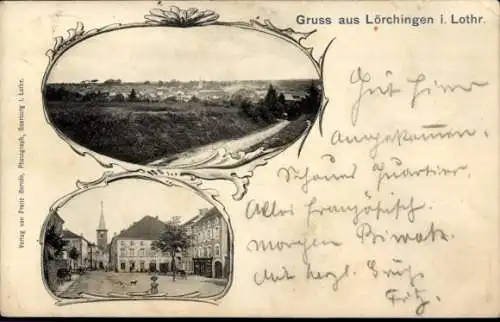 Gruss aus Lörchingen i. Lothr.
Gut hier
angekommen.
Schönes Quartier.
Alles französisch.
morgen Biwak.
Mit herzl. Grüß
Fritz.
Verlag von Franz Photograph, Saarburg i. Lothr.